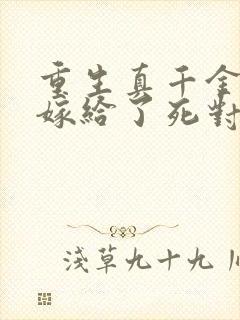 重生真千金
嫁給了死對
淺草九十九